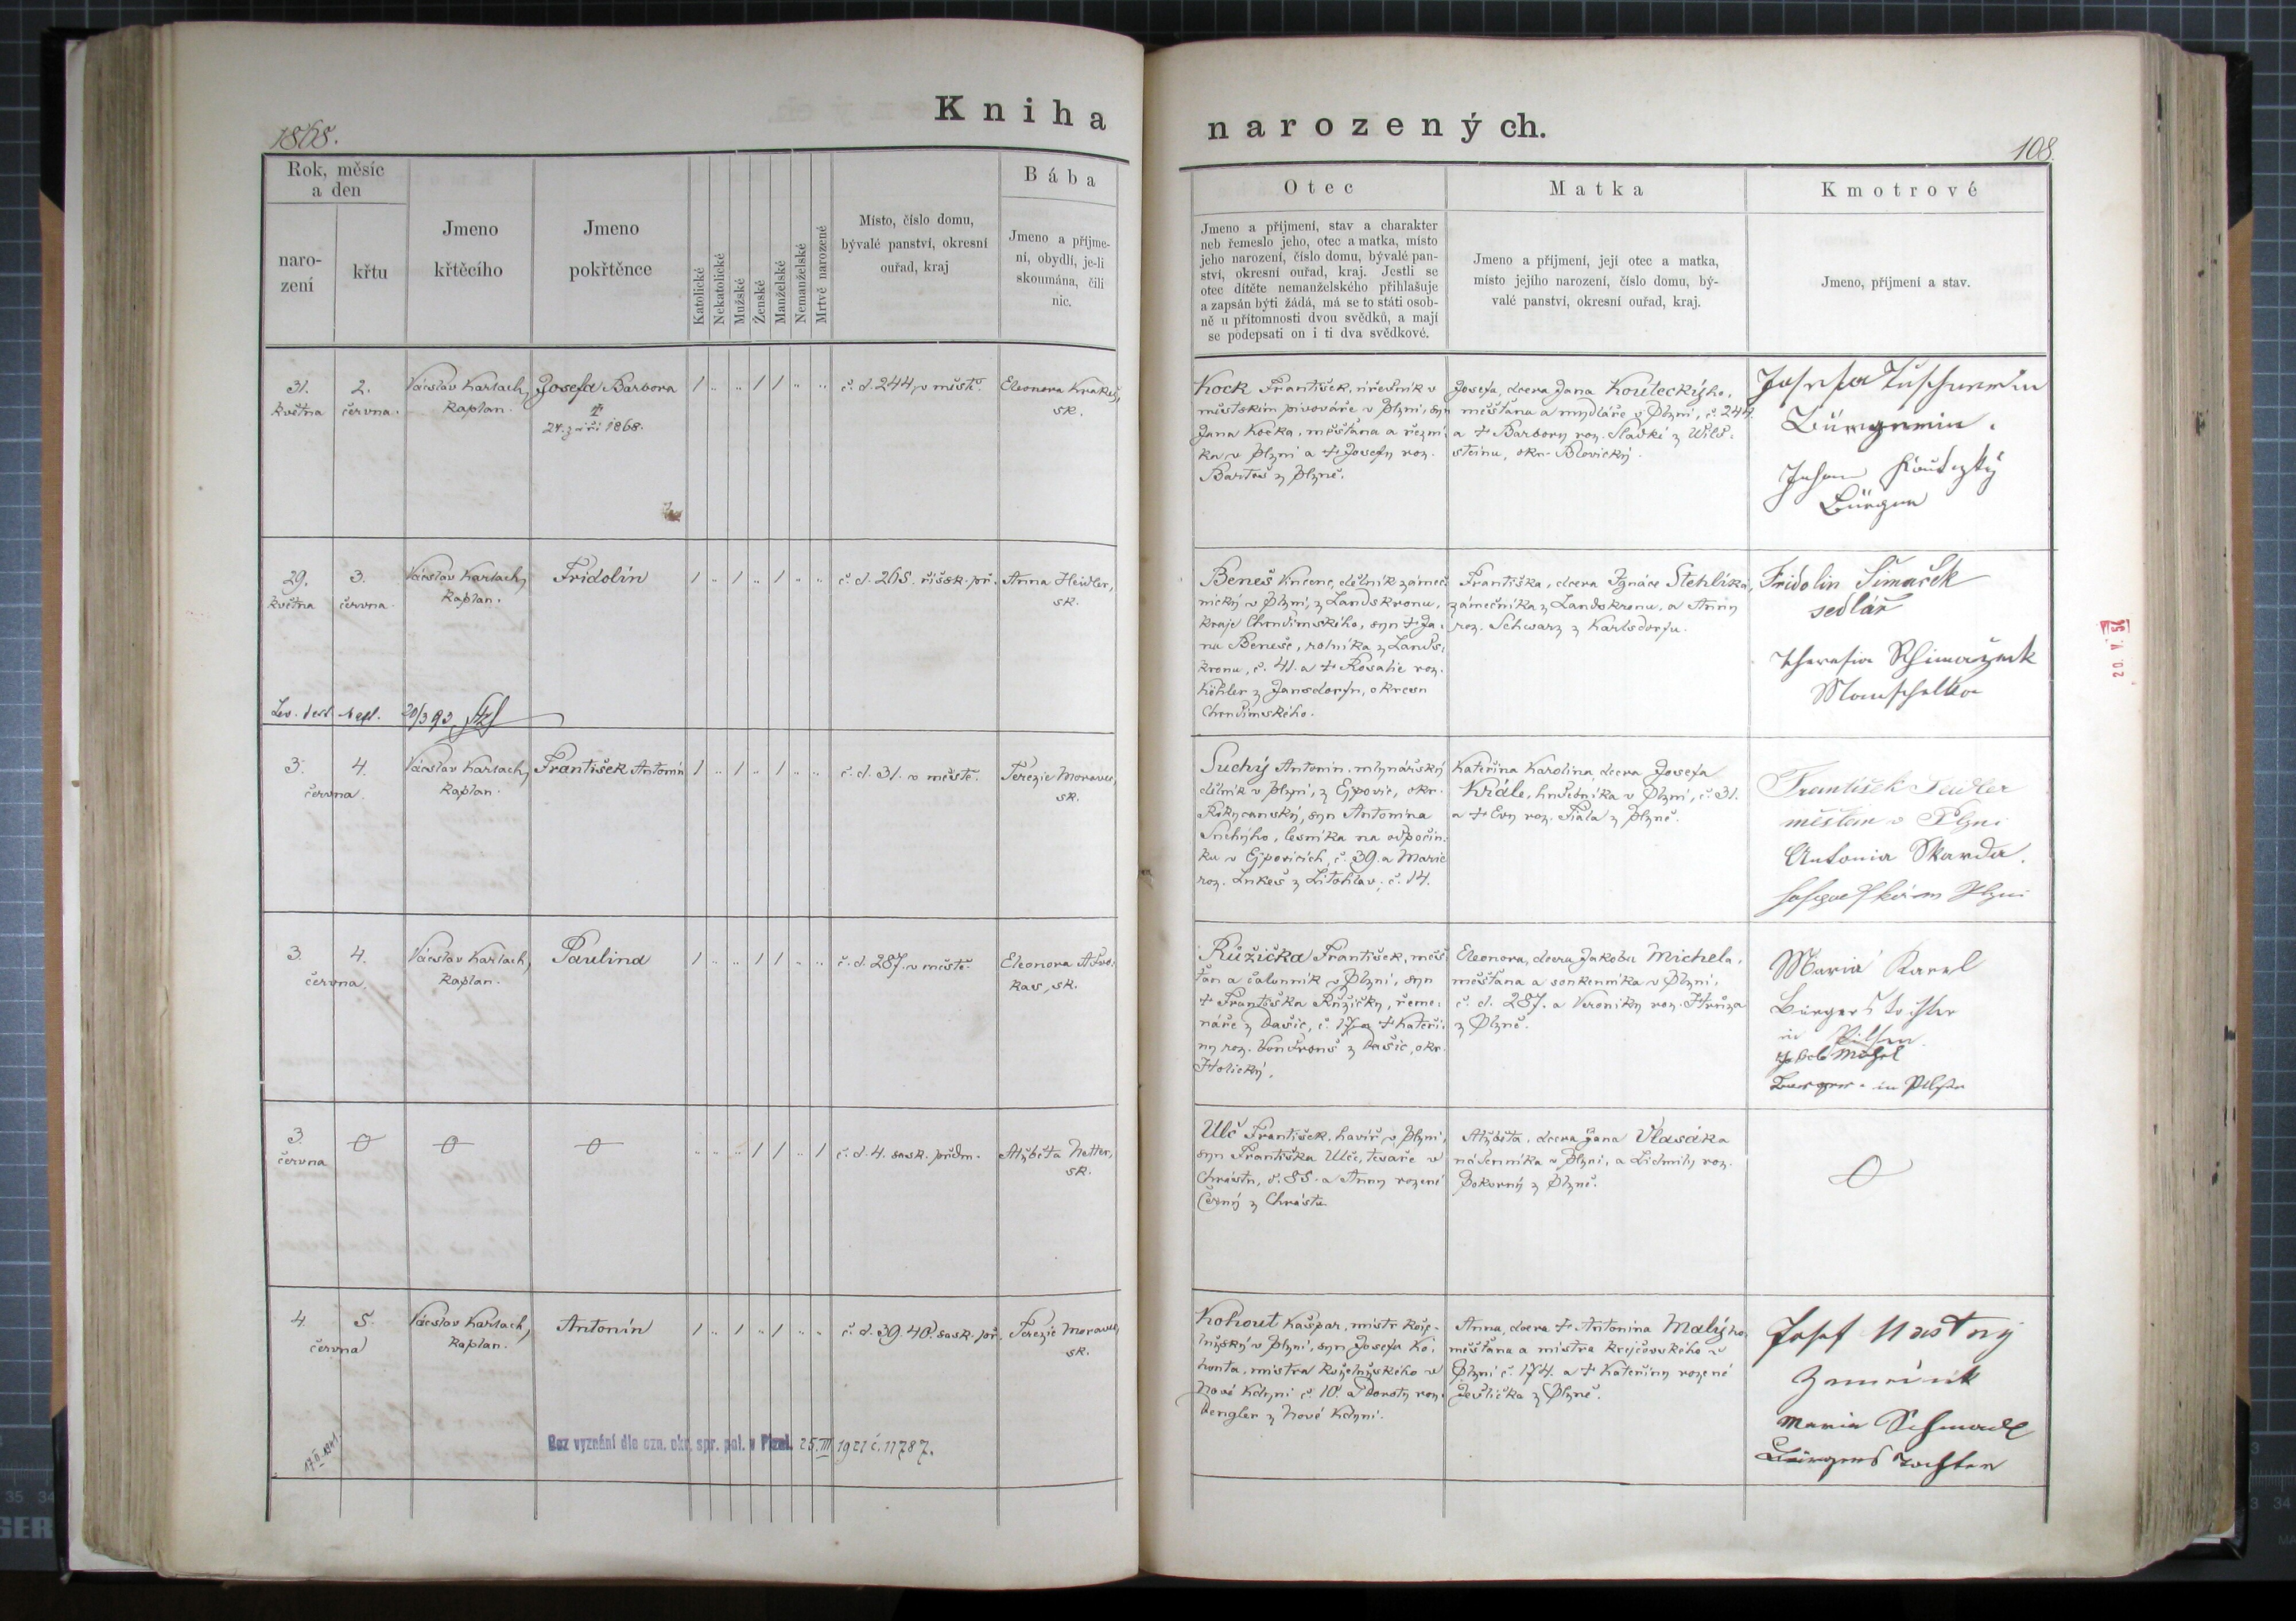 Kniha
1868.
Rok, měsíc
a den
naro-
zení
křtu
Jmeno
křtěcího
Jmeno
pokřtěnce
Katolické
Nekatolické
Mužské
Ženské
Manželské
Nemanželské
Mrtvě narozené
Místo, číslo domu,
bývalé panství, okresní
ouřad, kraj
Bába
Jmeno a příjme-
ní, obydlí, je-li
skoumána, čili
nic.
31.
května
2.
června.
Václav Karlach,
kaplan.
Josefa Barbora
†
24. září 1868.
1 „ „ 1 1 „ „
č. d. 244, v městě.
Eleonora
sk.
29.
května
3.
června.
Václav Karlach,
kaplan.
Fridolín
1 „ 1 „ 1 „ „
č. d. 265. říšsk. př.
Anna Heidler,
sk.
20/3 93
3. 4.
června.
Václav Karlach,
kaplan.
František Antonín
1 „ 1 „ 1 „ „
č. d. 31. v městě.
Terezie Moravec,
sk.
3. 4.
června.
Václav Karlach,
kaplan.
Paulina
1 „ „ 1 1 „ „
č. d. 287. v městě.
Eleonora
sk.
3.
června
„ „ „ 1 1 „ 1
č. d. 4. sask. předm.
Alžběta Netter,
sk.
4. 5.
června
Václav Karlach,
kaplan.
Antonín
1 „ 1 „ 1 „ „
č. d. 39. 40. sask. př.
Terezie Moravec,
sk.
Bez vyznání dle ozn. okr. spr. pol. v Plzni. 25. III 1921 č. 11787.
narozených.
108.
Otec
Matka
Kmotrové
Jmeno a příjmení, stav a charakter
neb řemeslo jeho, otec a matka, místo
jeho narození, číslo domu, bývalé pan-
ství, okresní ouřad, kraj. Jestli se
otec dítěte nemanželského přihlašuje
a zapsán býti žádá, má se to státi osob-
ně u přítomnosti dvou svědků, a mají
se podepsati on i ti dva svědkové.
Jmeno a příjmení, její otec a matka,
místo jejího narození, číslo domu, bý-
valé panství, okresní ouřad, kraj.
Jmeno, příjmení a stav.
Kock František, úředník v
městském pivováře v Plzni, syn
Jana Kocka, měšťana a řezní-
ka v Plzni a † Josefy roz.
Bartoš z Plzně.
Josefa, dcera Jana Kouteckýho,
měšťana a mydláře v Plzni, č. 244.
a † Barbory roz. Sladké z Wild-
steinu, okr. Blovický.
Josefa
Bürgerin.
Johann
Bürger
Beneš Vincenc, dělník zámeč-
nický v Plzni, z Landskronu,
kraje Chrudimského, syn † Ja-
na Beneše, rolníka z Lands-
kronu, č. 41. a † Rosalie roz.
Köhler z Jansdorfu, okresu
Chrudimského.
Františka, dcera Ignáce Stehlíka,
zámečníka z Landskronu, a Anny
roz. Schwarz z Karlsdorfu.
Fridolin Šimaček
sedlář
Theresia
20. V. 56
Suchý Antonín, mlynářský
dělník v Plzni, z Ejpovic, okr.
Rokycanský, syn Antonína
Suchýho, lesníka na odpočin-
ku v Ejpovicích, č. 39. a Marie
roz. Lukeš z Litohlav, č. 14.
Kateřina Karolina, dcera Josefa
Krále, hudebníka v Plzni, č. 31.
a † Evy roz. Fiala z Plzně.
František
měšťan v Plzni
Antonia Skarda.
Růžička František, měš-
ťan a čalouník v Plzni, syn
† Františka Růžičky, řeme-
náře z Dašic, č. 17. a † Kateři-
ny roz. Vondrouš z Dašic, okr.
Holický.
Eleonora, dcera Jakoba Michela,
měšťana a soukenníka v Plzni,
č. d. 287. a Veroniky roz. Hrůza
z Plzně.
Maria Karel
Bürgers tochter
in Pilsen
Jakob Michel
Burger in Pilsen
Ulč František, havíř v Plzni,
syn Františka Ulče, tesaře v
Chrástu, č. 85. a Anny rozené
Černý z Chrástu
Alžběta, dcera Jana Vlasáka
nádenníka v Plzni, a Lidmily roz.
Pokorný z Plzně.
Kohout Kašpar, mistr kože-
lužský v Plzni, syn Josefa Ko-
houta, mistra koželužského v
Nové Kdyni č. 10. a Doroty roz.
Dengler z Nové Kdyni.
Anna, dcera † Antonína Malýho,
měšťana a mistra krejčovského v
Plzni č. 174. a † Kateřiny rozené
Jedlička z Plzně.
Josef Nastný
Maria Schmadl
Bürgers tochter